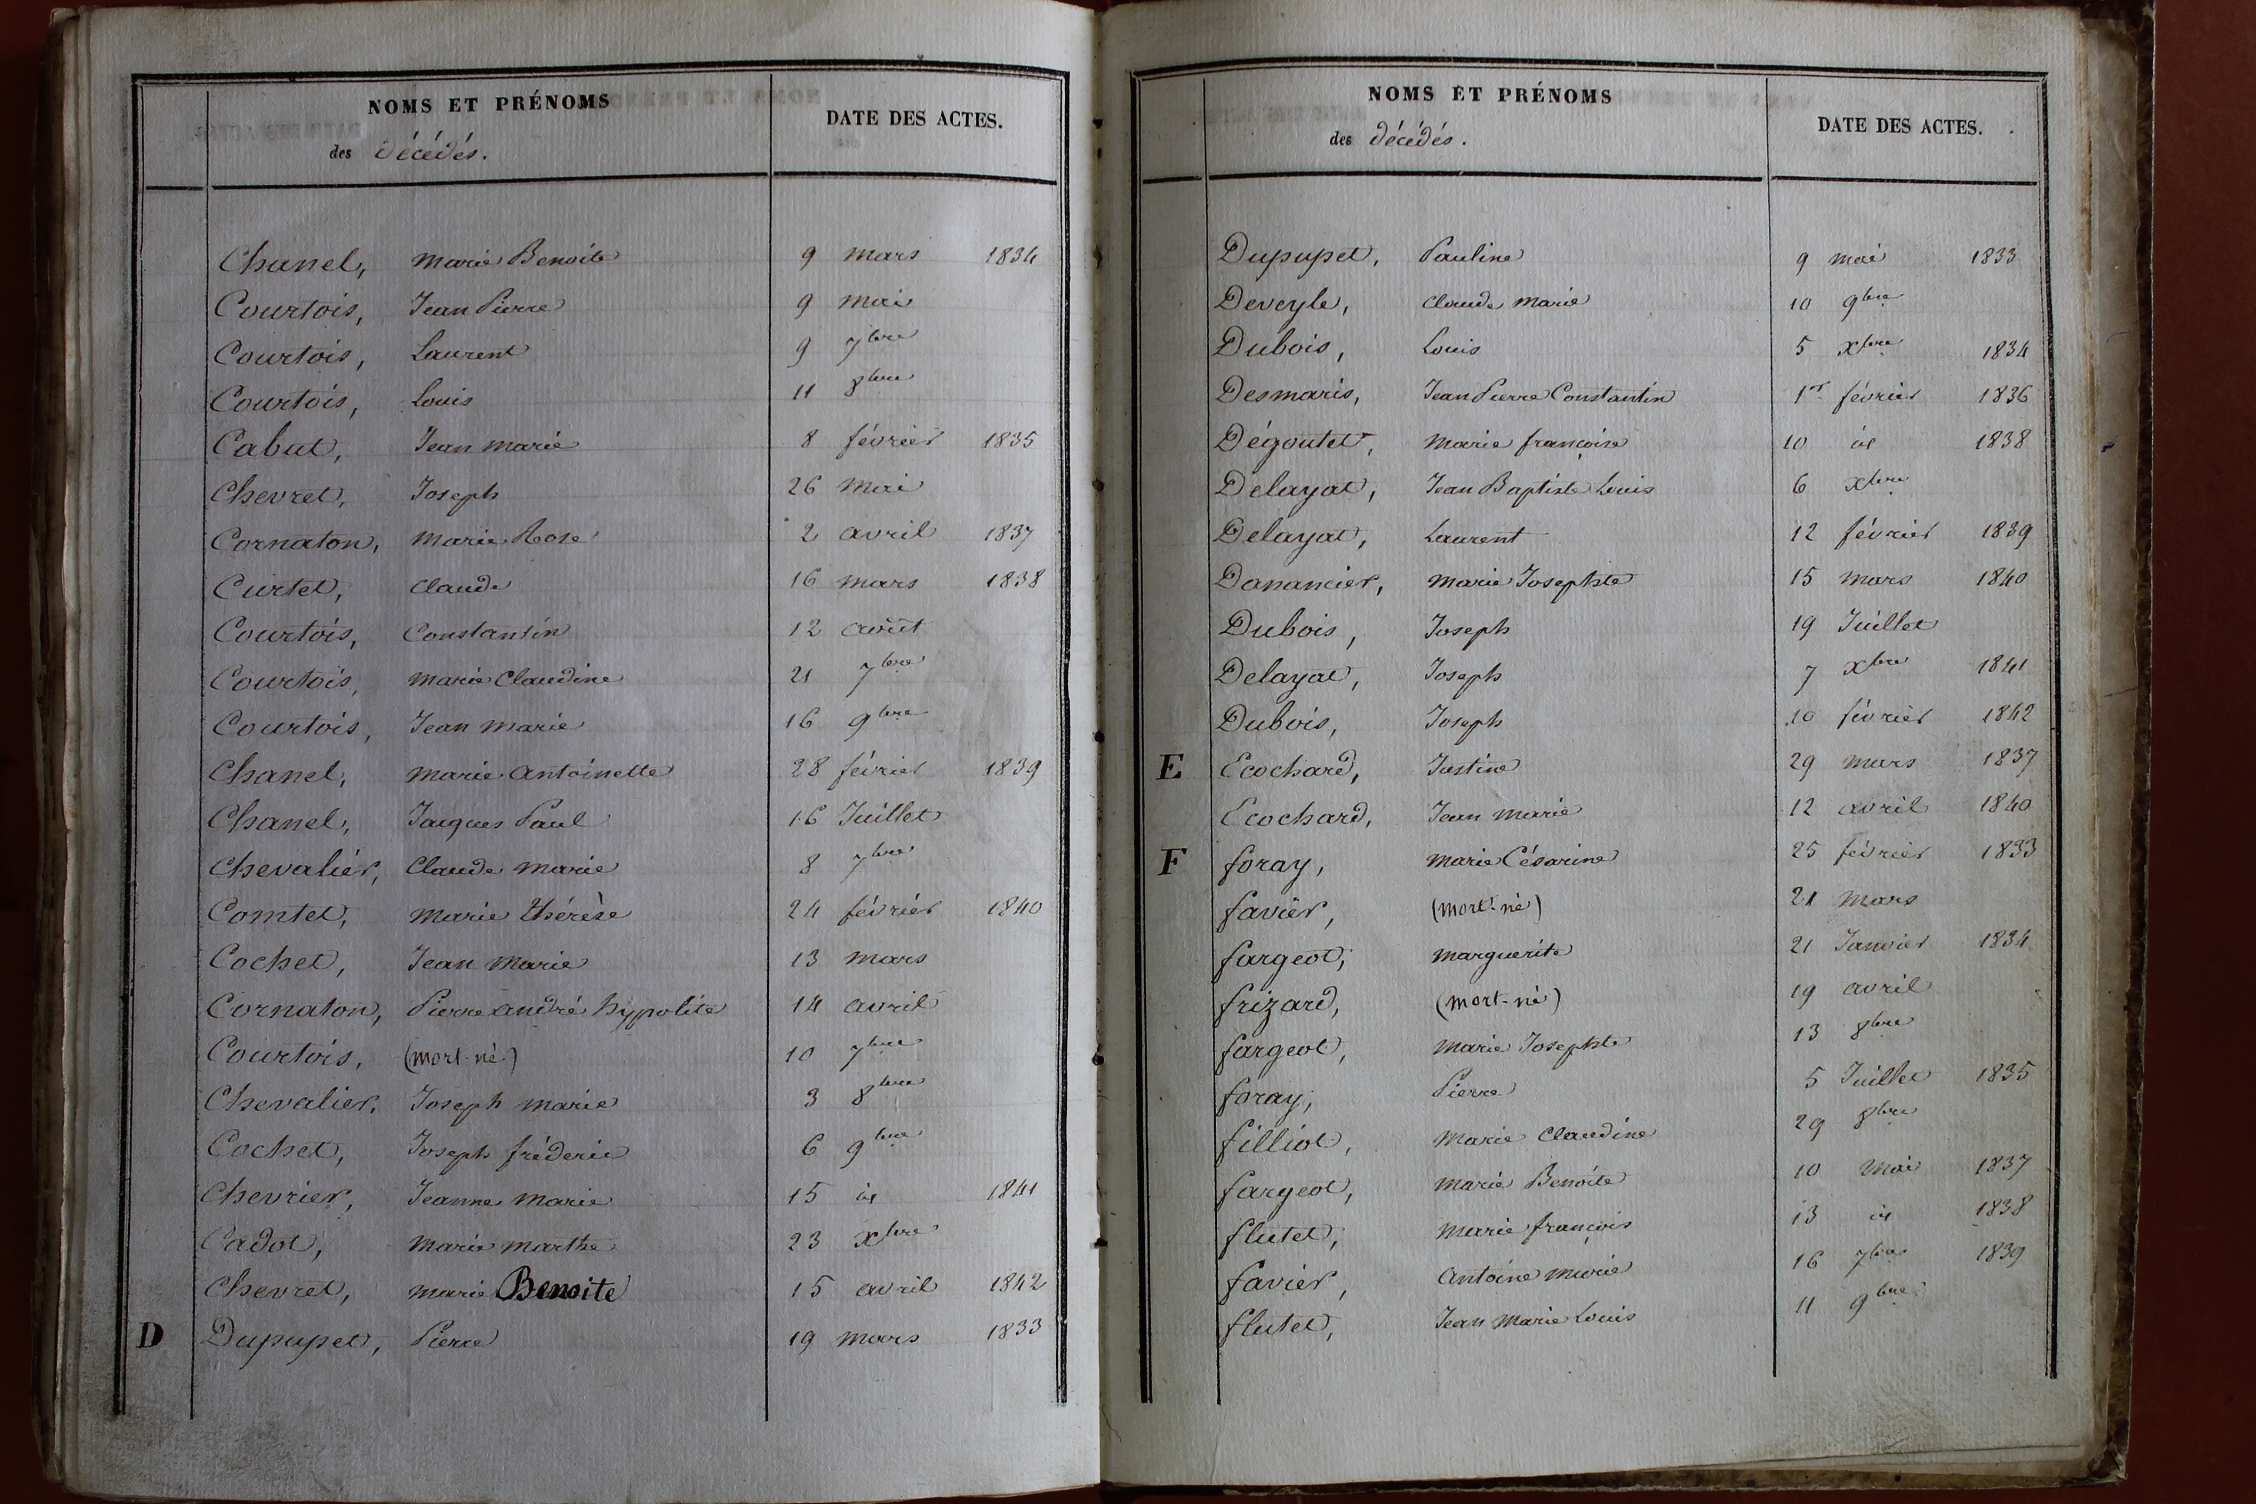 NOMS ET PRÉNOMS
des décédés.
DATE DES ACTES.
Chanel, marie Benoite 9 mars 1834
Courtois, Jean Pierre 9 mai
Courtois, Laurent 9 7bre
Courtois, Louis 11 8bre
Cabut, Jean marie 8 février 1835
Chevret, Joseph 26 mai
Cornaton, marie Rose 2 avril 1837
Curtet, claude 16 mars 1838
Courtois, Constantin 12 août
Courtois, marie Claudine 21 7bre
Courtois, Jean marie 16 9bre
Chanel, marie antoinette 28 février 1839
Chanel, Jacques Paul 16 Juillet
Chevalier, Claude marie 8 7bre
Comtet, marie thérèse 24 février 1840
Cochet, Jean marie 13 mars
Cornaton, Pierre andré hypolite 14 avril
Courtois, (mort-né) 10 7bre
Chevalier, Joseph marie 3 8bre
Cochet, Joseph fréderic 6 9bre
Chevrier, Jeanne marie 15 id 1841
Cadot, marie marthe 23 xbre
Chevret, marie Benoite 15 avril 1842
D Dupupet, Pierre 19 mars 1833
NOMS ET PRÉNOMS
des décédés.
DATE DES ACTES.
Dupupet, Pauline 9 mai 1833
Deveyle, claude marie 10 9bre
Dubois, Louis 5 xbre 1834
Desmaris, Jean Pierre Constantin 1er février 1836
Dégoutet, marie françoise 10 id 1838
Delayat, Jean Baptiste Louis 6 xbre
Delayat, Laurent 12 février 1839
Danancier, marie Josephte 15 mars 1840
Dubois, Joseph 19 Juillet
Delayat, Joseph 7 xbre 1841
Dubois, Joseph 10 février 1842
E Ecochard, Justine 29 mars 1837
Ecochard, Jean marie 12 avril 1840
F foray, marie Césarine 25 février 1833
favier, (mort-né) 21 mars
fargeot, marguerite 21 Janvier 1834
frizard, (mort-né) 19 avril
fargeot, marie Josephte 13 8bre
foray, Pierre 5 Juillet 1835
filliot, marie claudine 29 8bre
fargeot, marie Benoite 10 mai 1837
flutet, marie françois 13 id 1838
favier, antoine marie 16 7bre 1839
flutet, Jean marie Louis 11 9bre